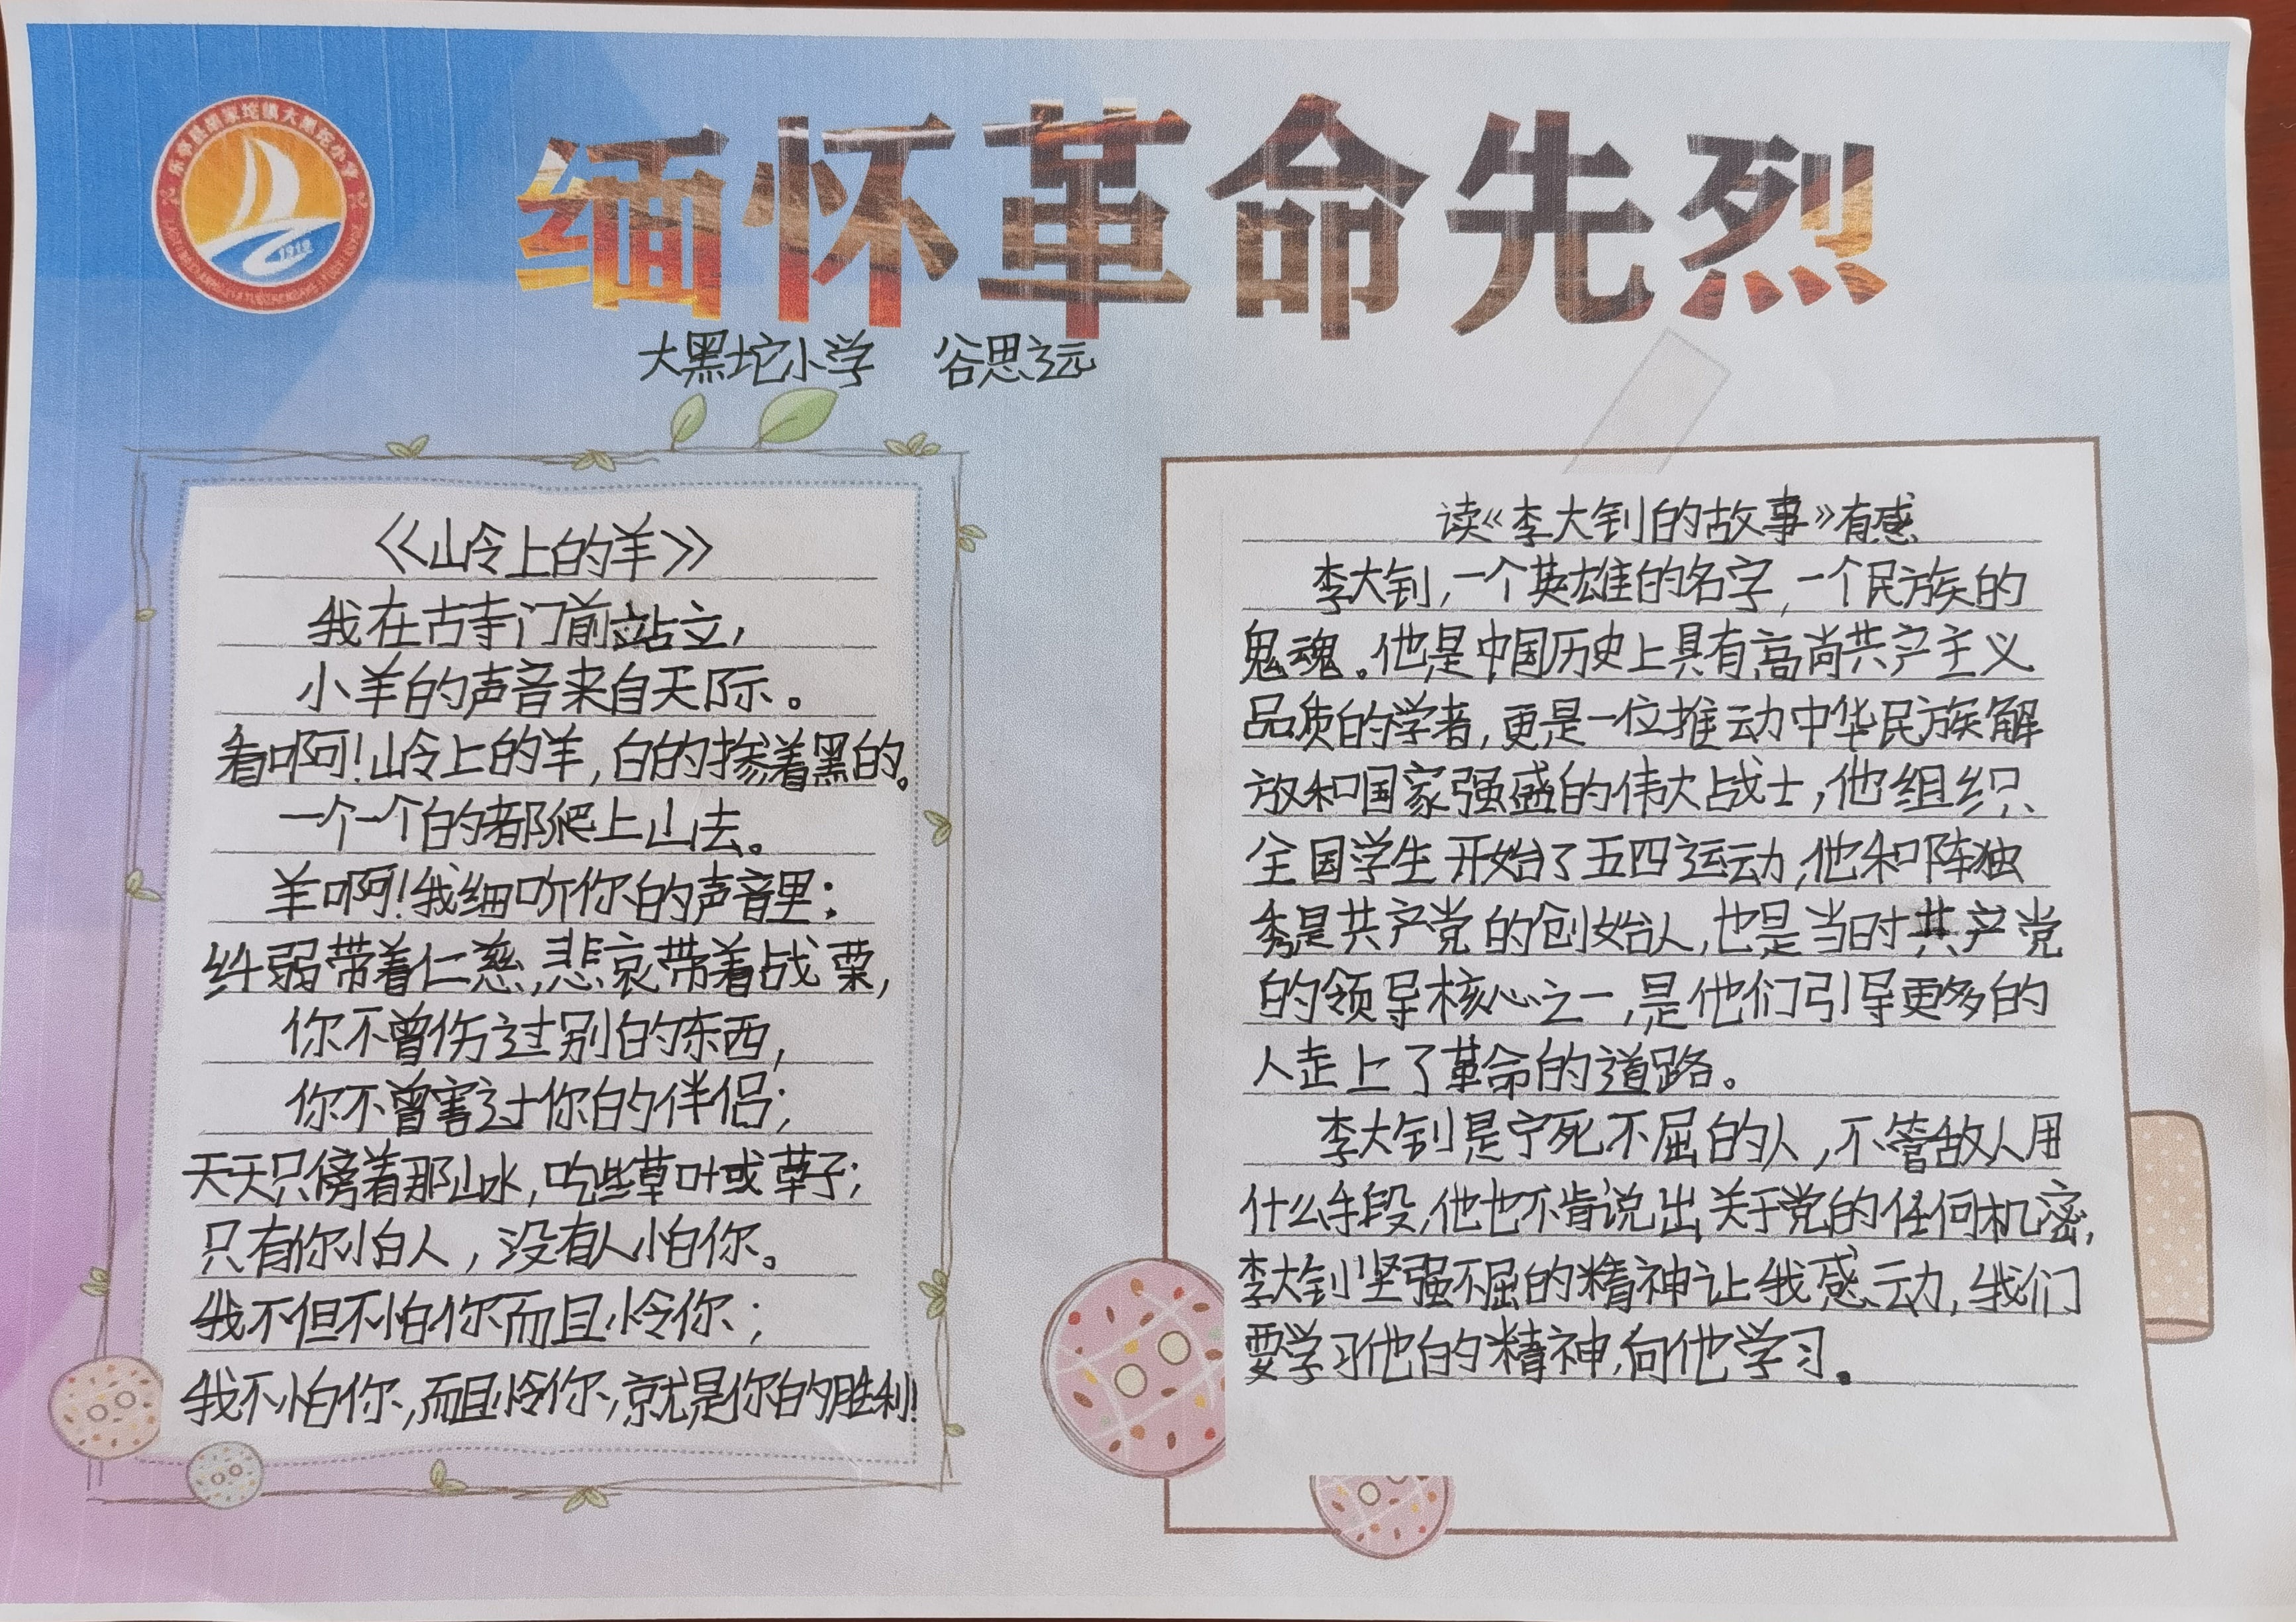 乐亭县胡家坨镇大黑坨小学
1919
缅怀革命先烈
大黑坨小学 谷思远
《山岭上的羊》
我在古寺门前站立，
小羊的声音来自天际。
看啊！山岭上的羊，白的掺着黑的。
一个一个的都爬上山去。
羊啊！我细听你的声音里：
纤弱带着仁慈，悲哀带着战栗，
你不曾伤过别的东西，
你不曾害过你的伴侣；
天天只傍着那山水，吃些草叶或草子；
只有你怕人，没有人怕你。
我不但不怕你而且怜你；
我不怕你，而且怜你，就是你的胜利！
读《李大钊的故事》有感
李大钊，一个英雄的名字，一个民族的
鬼魂。他是中国历史上具有高尚共产主义
品质的学者，更是一位推动中华民族解
放和国家强盛的伟大战士，他组织
全国学生开始了五四运动，他和陈独
秀是共产党的创始人，也是当时共产党
的领导核心之一，是他们引导更多的
人走上了革命的道路。
李大钊是宁死不屈的人，不管敌人用
什么手段，他也不肯说出关于党的任何机密，
李大钊坚强不屈的精神让我感动，我们
要学习他的精神，向他学习。